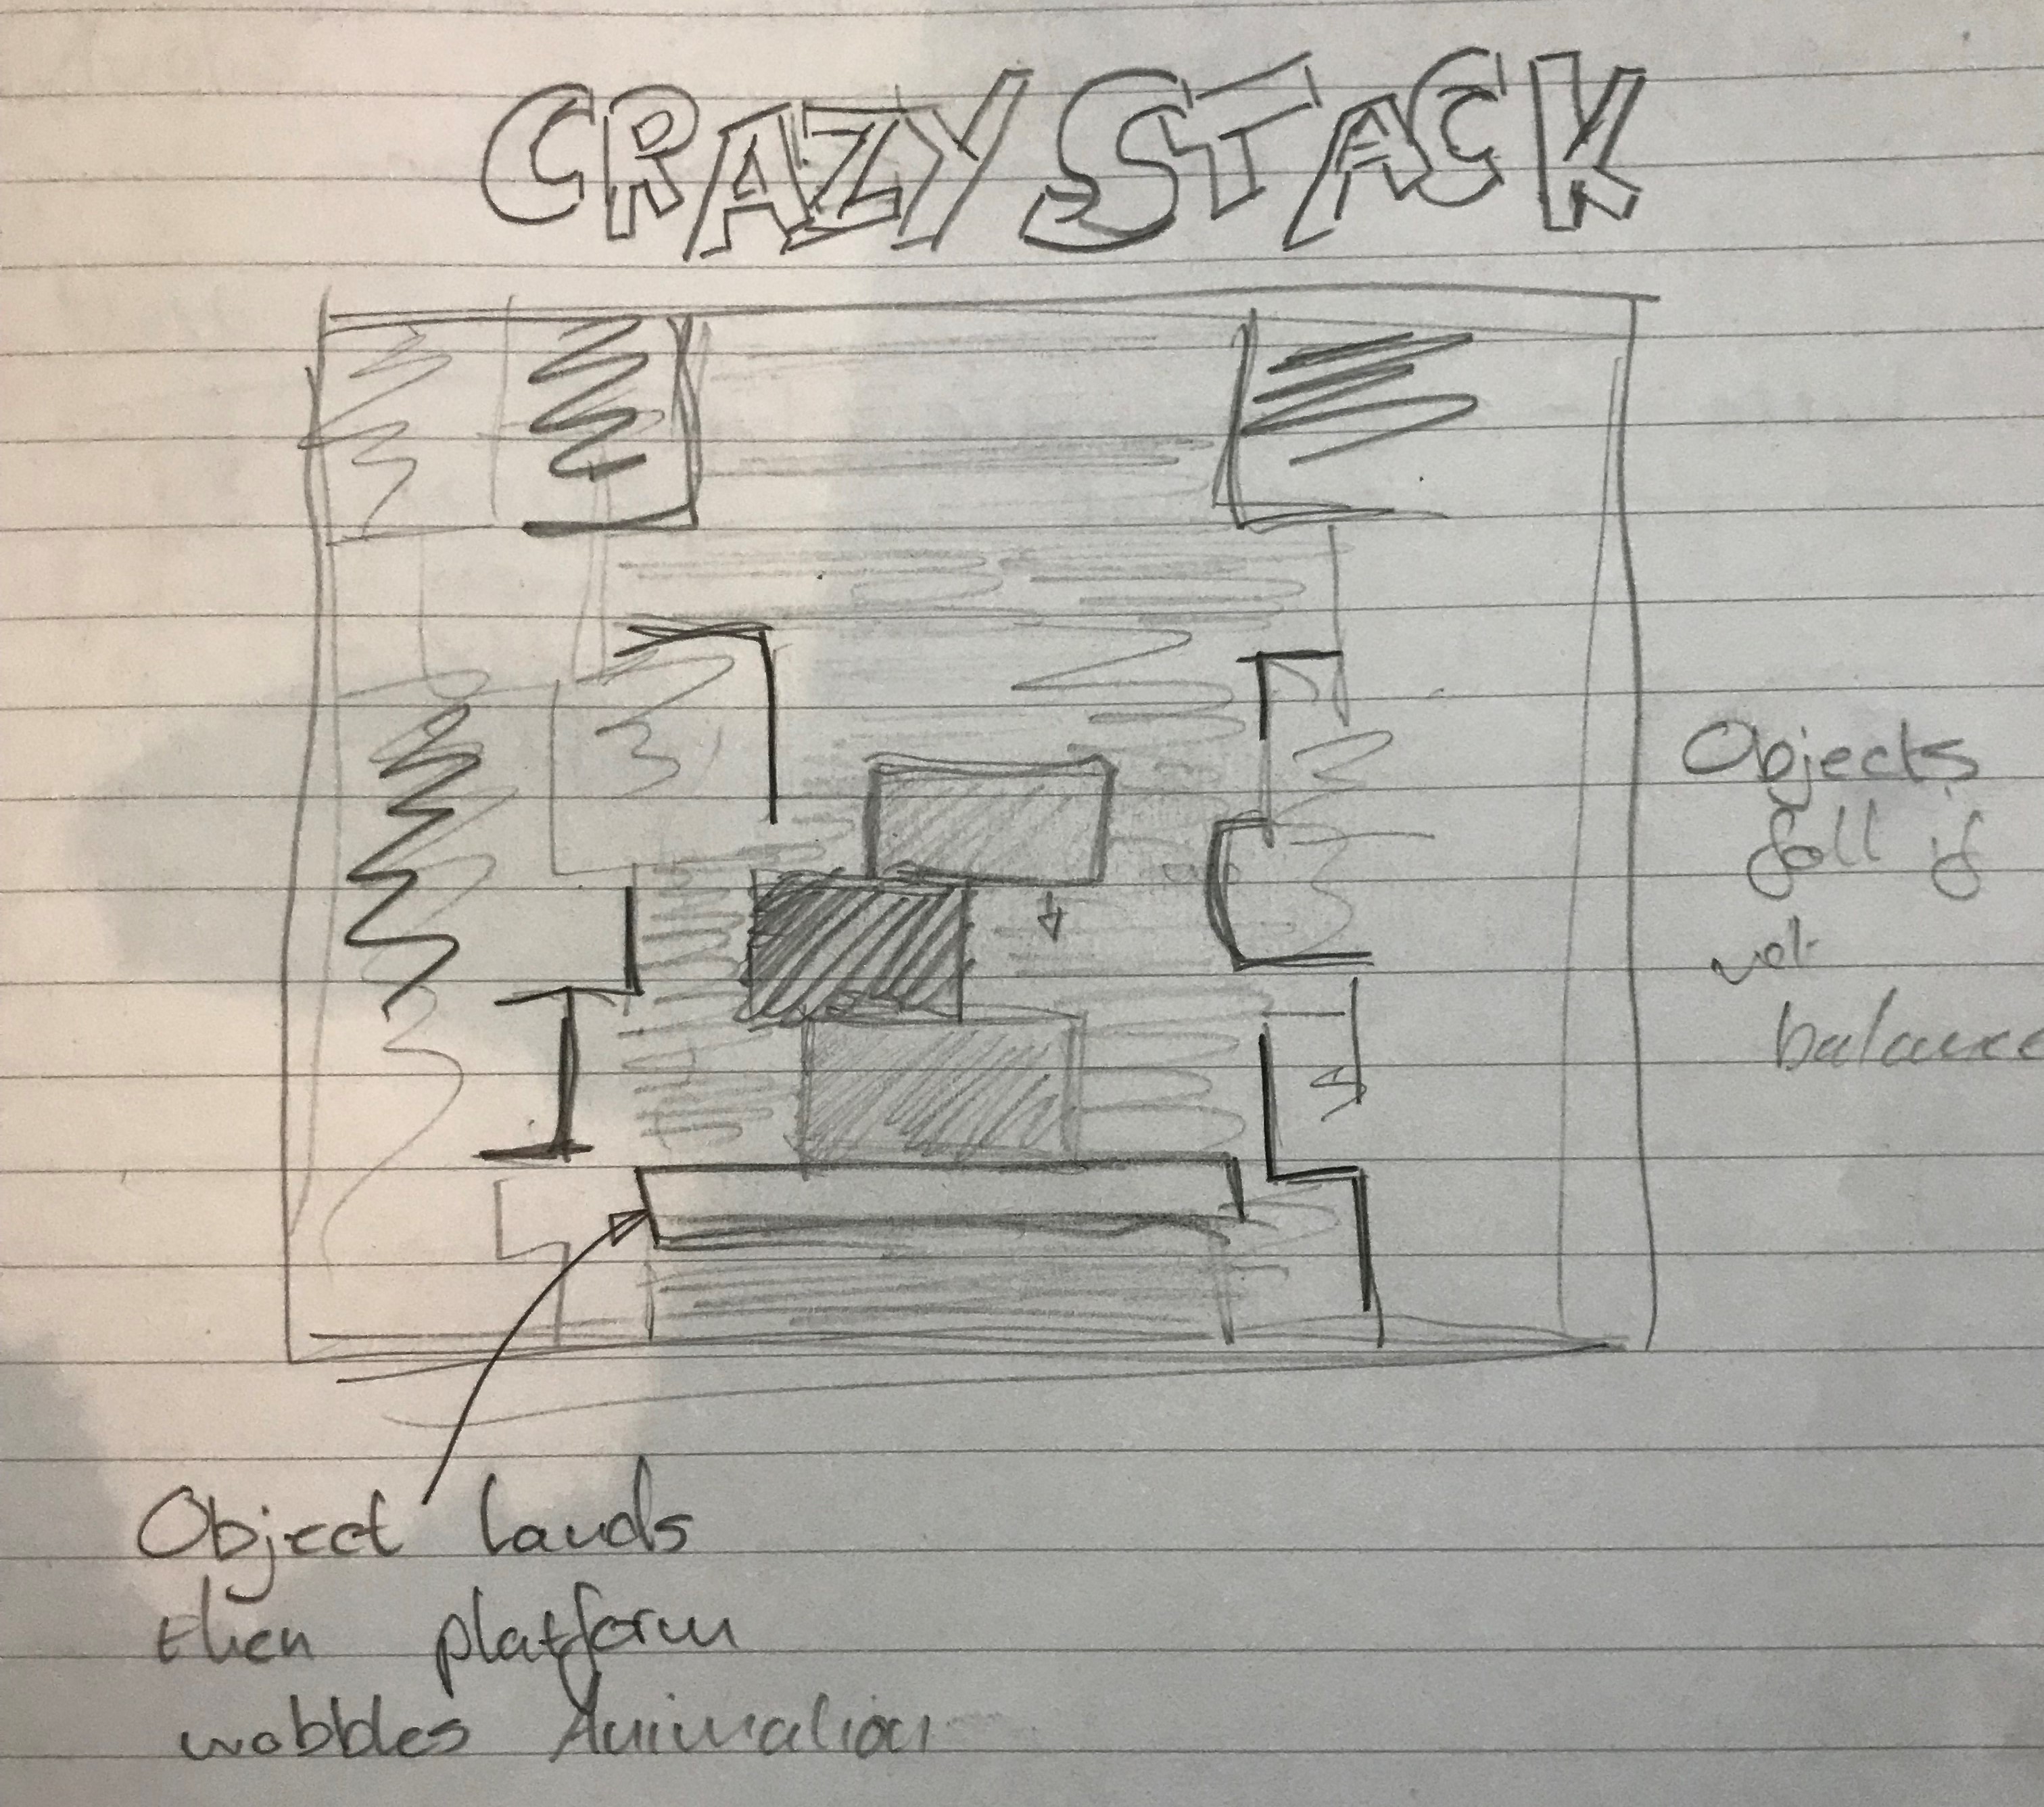 CRAZY STACK
Objects
fall if
not
balance
Object lands
then platform
wobbles Animation